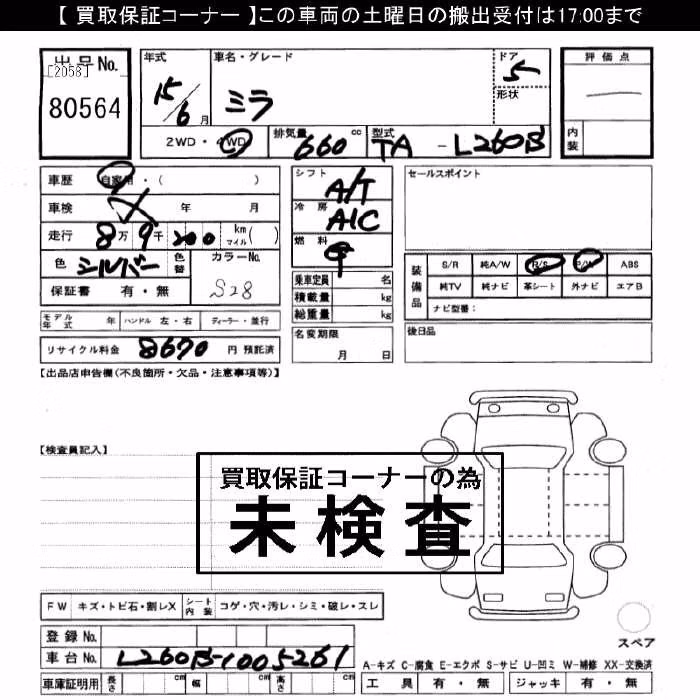 【 買取保証コーナー 】この車両の土曜日の搬出受付は17:00まで
出品No.
[2058]
80564
年式
15/6月
車名・グレード
ミラ
ドア
5
形状
評価点
内装
2WD・4WD
排気量 660 cc
型式 TA - L260B
車歴 自家用・( )
車検 年 月
走行 8万9千200 km マイル( )
色 シルバー 色替
カラーNo. S28
保証書 有・無
シフト A/T
冷房 A/C
燃料
乗車定員 名
積載量 kg
総重量 kg
セールスポイント
装備品
S/R 純A/W P/S P/W ABS
純TV 純ナビ 革シート 外ナビ エアB
ナビ型番:
モデル年式 年 ハンドル 左・右 ディーラー・並行
リサイクル料金 8670 円 預託済
名変期限 月 日
後日品
【出品店申告欄(不良箇所・欠品・注意事項等)】
【検査員記入】
買取保証コーナーの為
未検査
FW キズ・トビ石・割レX シート内装 コゲ・穴・汚レ・シミ・破レ・スレ
登録No.
車台No. L260B-1005261
スペア
A-キズ C-腐食 E-エクボ S-サビ U-凹ミ W-補修 XX-交換済
車庫証明用 長さ cm 幅 cm 高さ cm
工具 有・無 ジャッキ 有・無